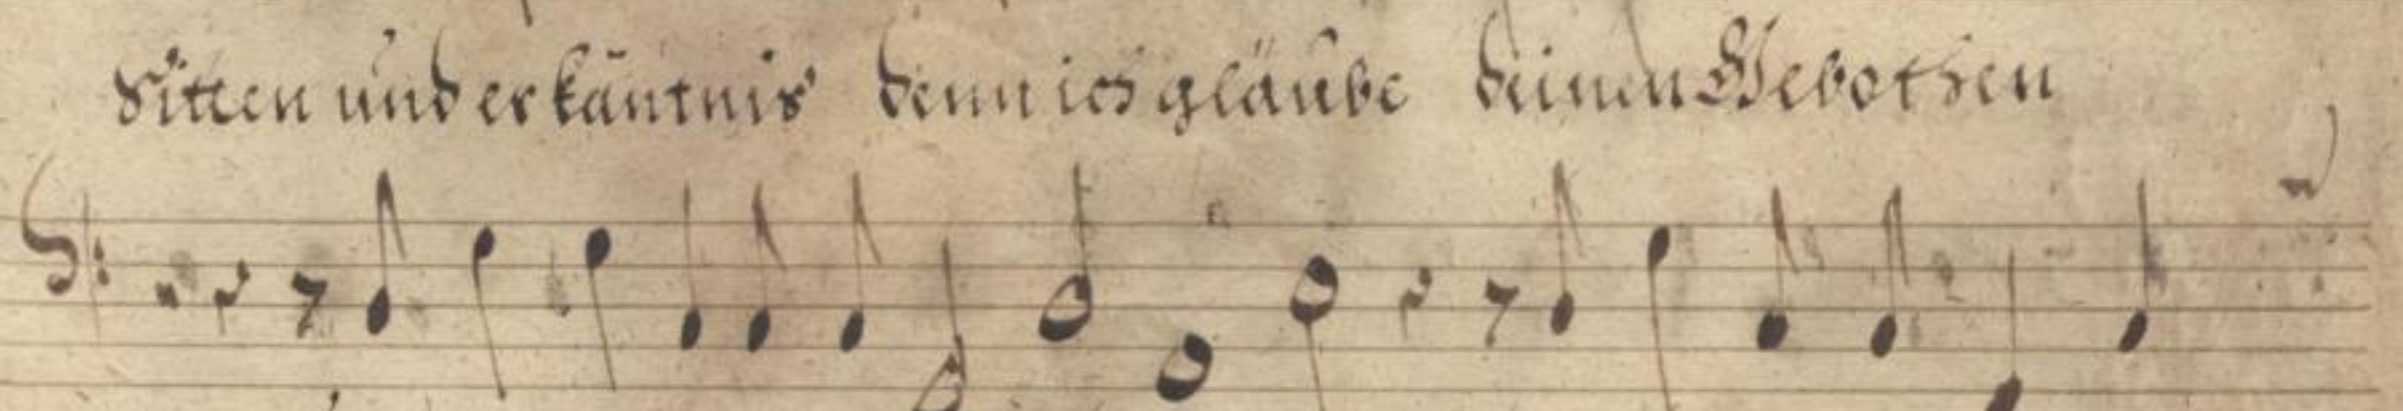 Sitten und erkäntnis denn ich gläube deinen Gebothen